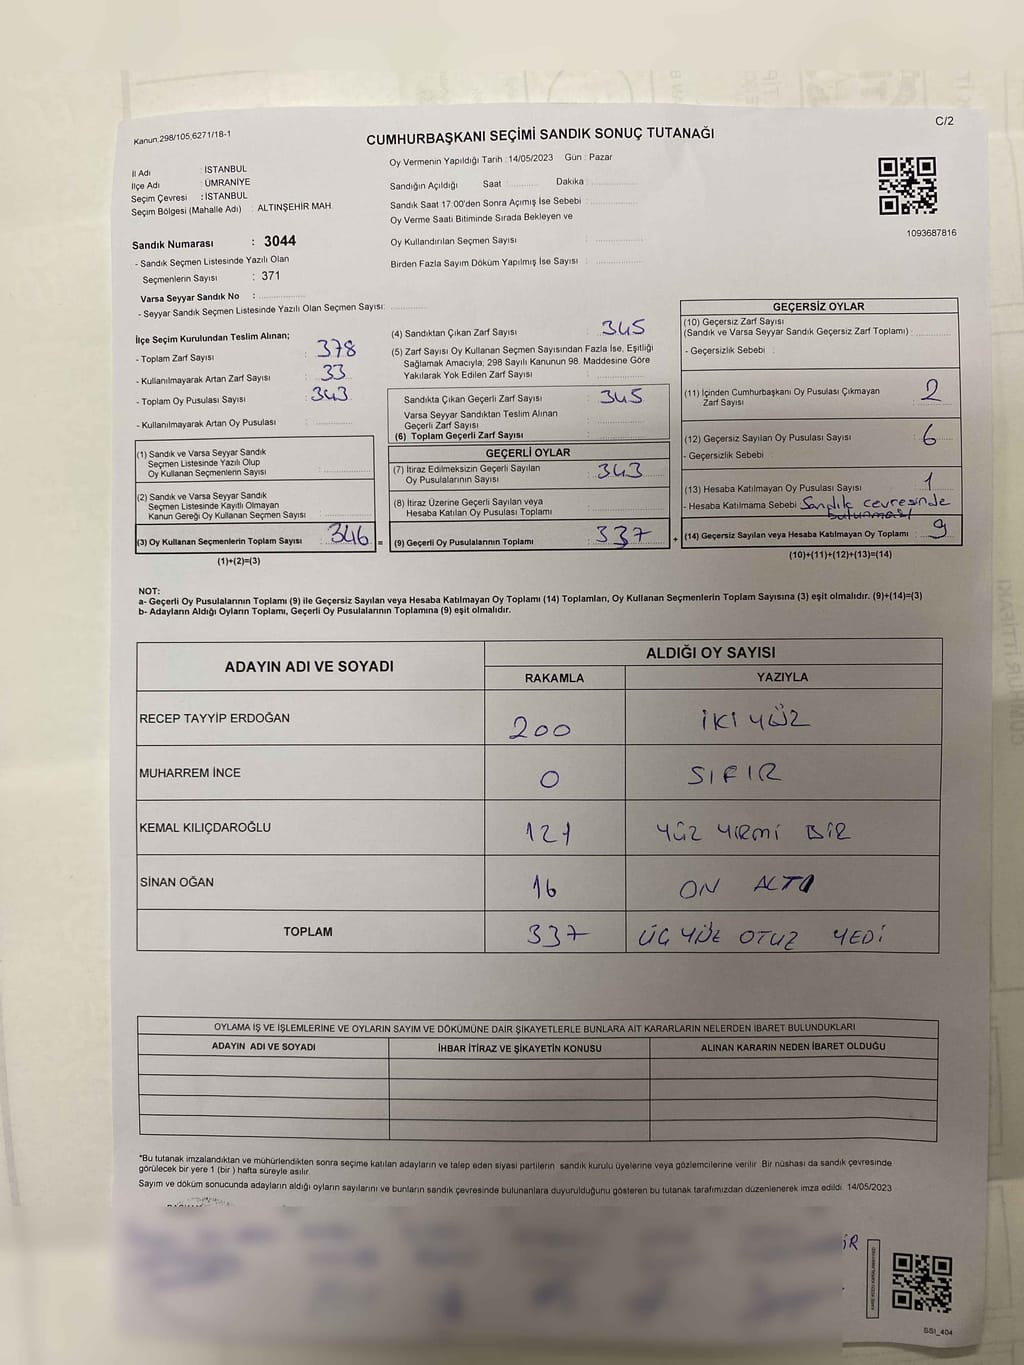 Kanun.298/105,6271/18-1
C/2
CUMHURBAŞKANI SEÇİMİ SANDIK SONUÇ TUTANAĞI
İl Adı : İSTANBUL
İlçe Adı : ÜMRANİYE
Seçim Çevresi : İSTANBUL
Seçim Bölgesi (Mahalle Adı) : ALTINŞEHİR MAH.
Oy Vermenin Yapıldığı Tarih : 14/05/2023 Gün : Pazar
Sandığın Açıldığı Saat Dakika :
Sandık Saat 17:00'den Sonra Açımış İse Sebebi :
Oy Verme Saati Bitiminde Sırada Bekleyen ve
Oy Kullandırılan Seçmen Sayısı :
Birden Fazla Sayım Döküm Yapılmış İse Sayısı :
1093687816
Sandık Numarası : 3044
- Sandık Seçmen Listesinde Yazılı Olan
Seçmenlerin Sayısı : 371
Varsa Seyyar Sandık No :
- Seyyar Sandık Seçmen Listesinde Yazılı Olan Seçmen Sayısı:
İlçe Seçim Kurulundan Teslim Alınan;
- Toplam Zarf Sayısı : 378
- Kullanılmayarak Artan Zarf Sayısı : 33
- Toplam Oy Pusulası Sayısı : 343
- Kullanılmayarak Artan Oy Pusulası :
(1) Sandık ve Varsa Seyyar Sandık
Seçmen Listesinde Yazılı Olup
Oy Kullanan Seçmenlerin Sayısı :
(2) Sandık ve Varsa Seyyar Sandık
Seçmen Listesinde Kayıtlı Olmayan
Kanun Gereği Oy Kullanan Seçmen Sayısı :
(3) Oy Kullanan Seçmenlerin Toplam Sayısı : 346 =
(1)+(2)=(3)
(4) Sandıktan Çıkan Zarf Sayısı : 345
(5) Zarf Sayısı Oy Kullanan Seçmen Sayısından Fazla İse, Eşitliği
Sağlamak Amacıyla; 298 Sayılı Kanunun 98. Maddesine Göre
Yakılarak Yok Edilen Zarf Sayısı :
Sandıkta Çıkan Geçerli Zarf Sayısı : 345
Varsa Seyyar Sandıktan Teslim Alınan
Geçerli Zarf Sayısı :
(6) Toplam Geçerli Zarf Sayısı :
GEÇERLİ OYLAR
(7) İtiraz Edilmeksizin Geçerli Sayılan
Oy Pusulalarının Sayısı : 343
(8) İtiraz Üzerine Geçerli Sayılan veya
Hesaba Katılan Oy Pusulası Toplamı :
(9) Geçerli Oy Pusulalarının Toplamı : 337 +
GEÇERSİZ OYLAR
(10) Geçersiz Zarf Sayısı
(Sandık ve Varsa Seyyar Sandık Geçersiz Zarf Toplamı) :
- Geçersizlik Sebebi :
(11) İçinden Cumhurbaşkanı Oy Pusulası Çıkmayan
Zarf Sayısı : 2
(12) Geçersiz Sayılan Oy Pusulası Sayısı : 6
- Geçersizlik Sebebi :
(13) Hesaba Katılmayan Oy Pusulası Sayısı : 1
- Hesaba Katılmama Sebebi : Sandık çevresinde
bulunması
(14) Geçersiz Sayılan veya Hesaba Katılmayan Oy Toplamı : 9
(10)+(11)+(12)+(13)=(14)
NOT:
a- Geçerli Oy Pusulalarının Toplamı (9) ile Geçersiz Sayılan veya Hesaba Katılmayan Oy Toplamı (14) Toplamları, Oy Kullanan Seçmenlerin Toplam Sayısına (3) eşit olmalıdır. (9)+(14)=(3)
b- Adayların Aldığı Oyların Toplamı, Geçerli Oy Pusulalarının Toplamına (9) eşit olmalıdır.
ADAYIN ADI VE SOYADI
ALDIĞI OY SAYISI
RAKAMLA YAZIYLA
RECEP TAYYİP ERDOĞAN 200 İKİ YÜZ
MUHARREM İNCE 0 SIFIR
KEMAL KILIÇDAROĞLU 121 YÜZ YİRMİ BİR
SİNAN OĞAN 16 ON ALTI
TOPLAM 337 ÜÇ YÜZ OTUZ YEDİ
OYLAMA İŞ VE İŞLEMLERİNE VE OYLARIN SAYIM VE DÖKÜMÜNE DAİR ŞİKAYETLERLE BUNLARA AİT KARARLARIN NELERDEN İBARET BULUNDUKLARI
ADAYIN ADI VE SOYADI İHBAR İTİRAZ VE ŞİKAYETİN KONUSU ALINAN KARARIN NEDEN İBARET OLDUĞU
*Bu tutanak imzalandıktan ve mühürlendikten sonra seçime katılan adayların ve talep eden siyasi partilerin sandık kurulu üyelerine veya gözlemcilerine verilir. Bir nüshası da sandık çevresinde
görülecek bir yere 1 (bir) hafta süreyle asılır.
Sayım ve döküm sonucunda adayların aldığı oyların sayılarını ve bunların sandık çevresinde bulunanlara duyurulduğunu gösteren bu tutanak tarafımızdan düzenlenerek imza edildi. 14/05/2023
SSI_404